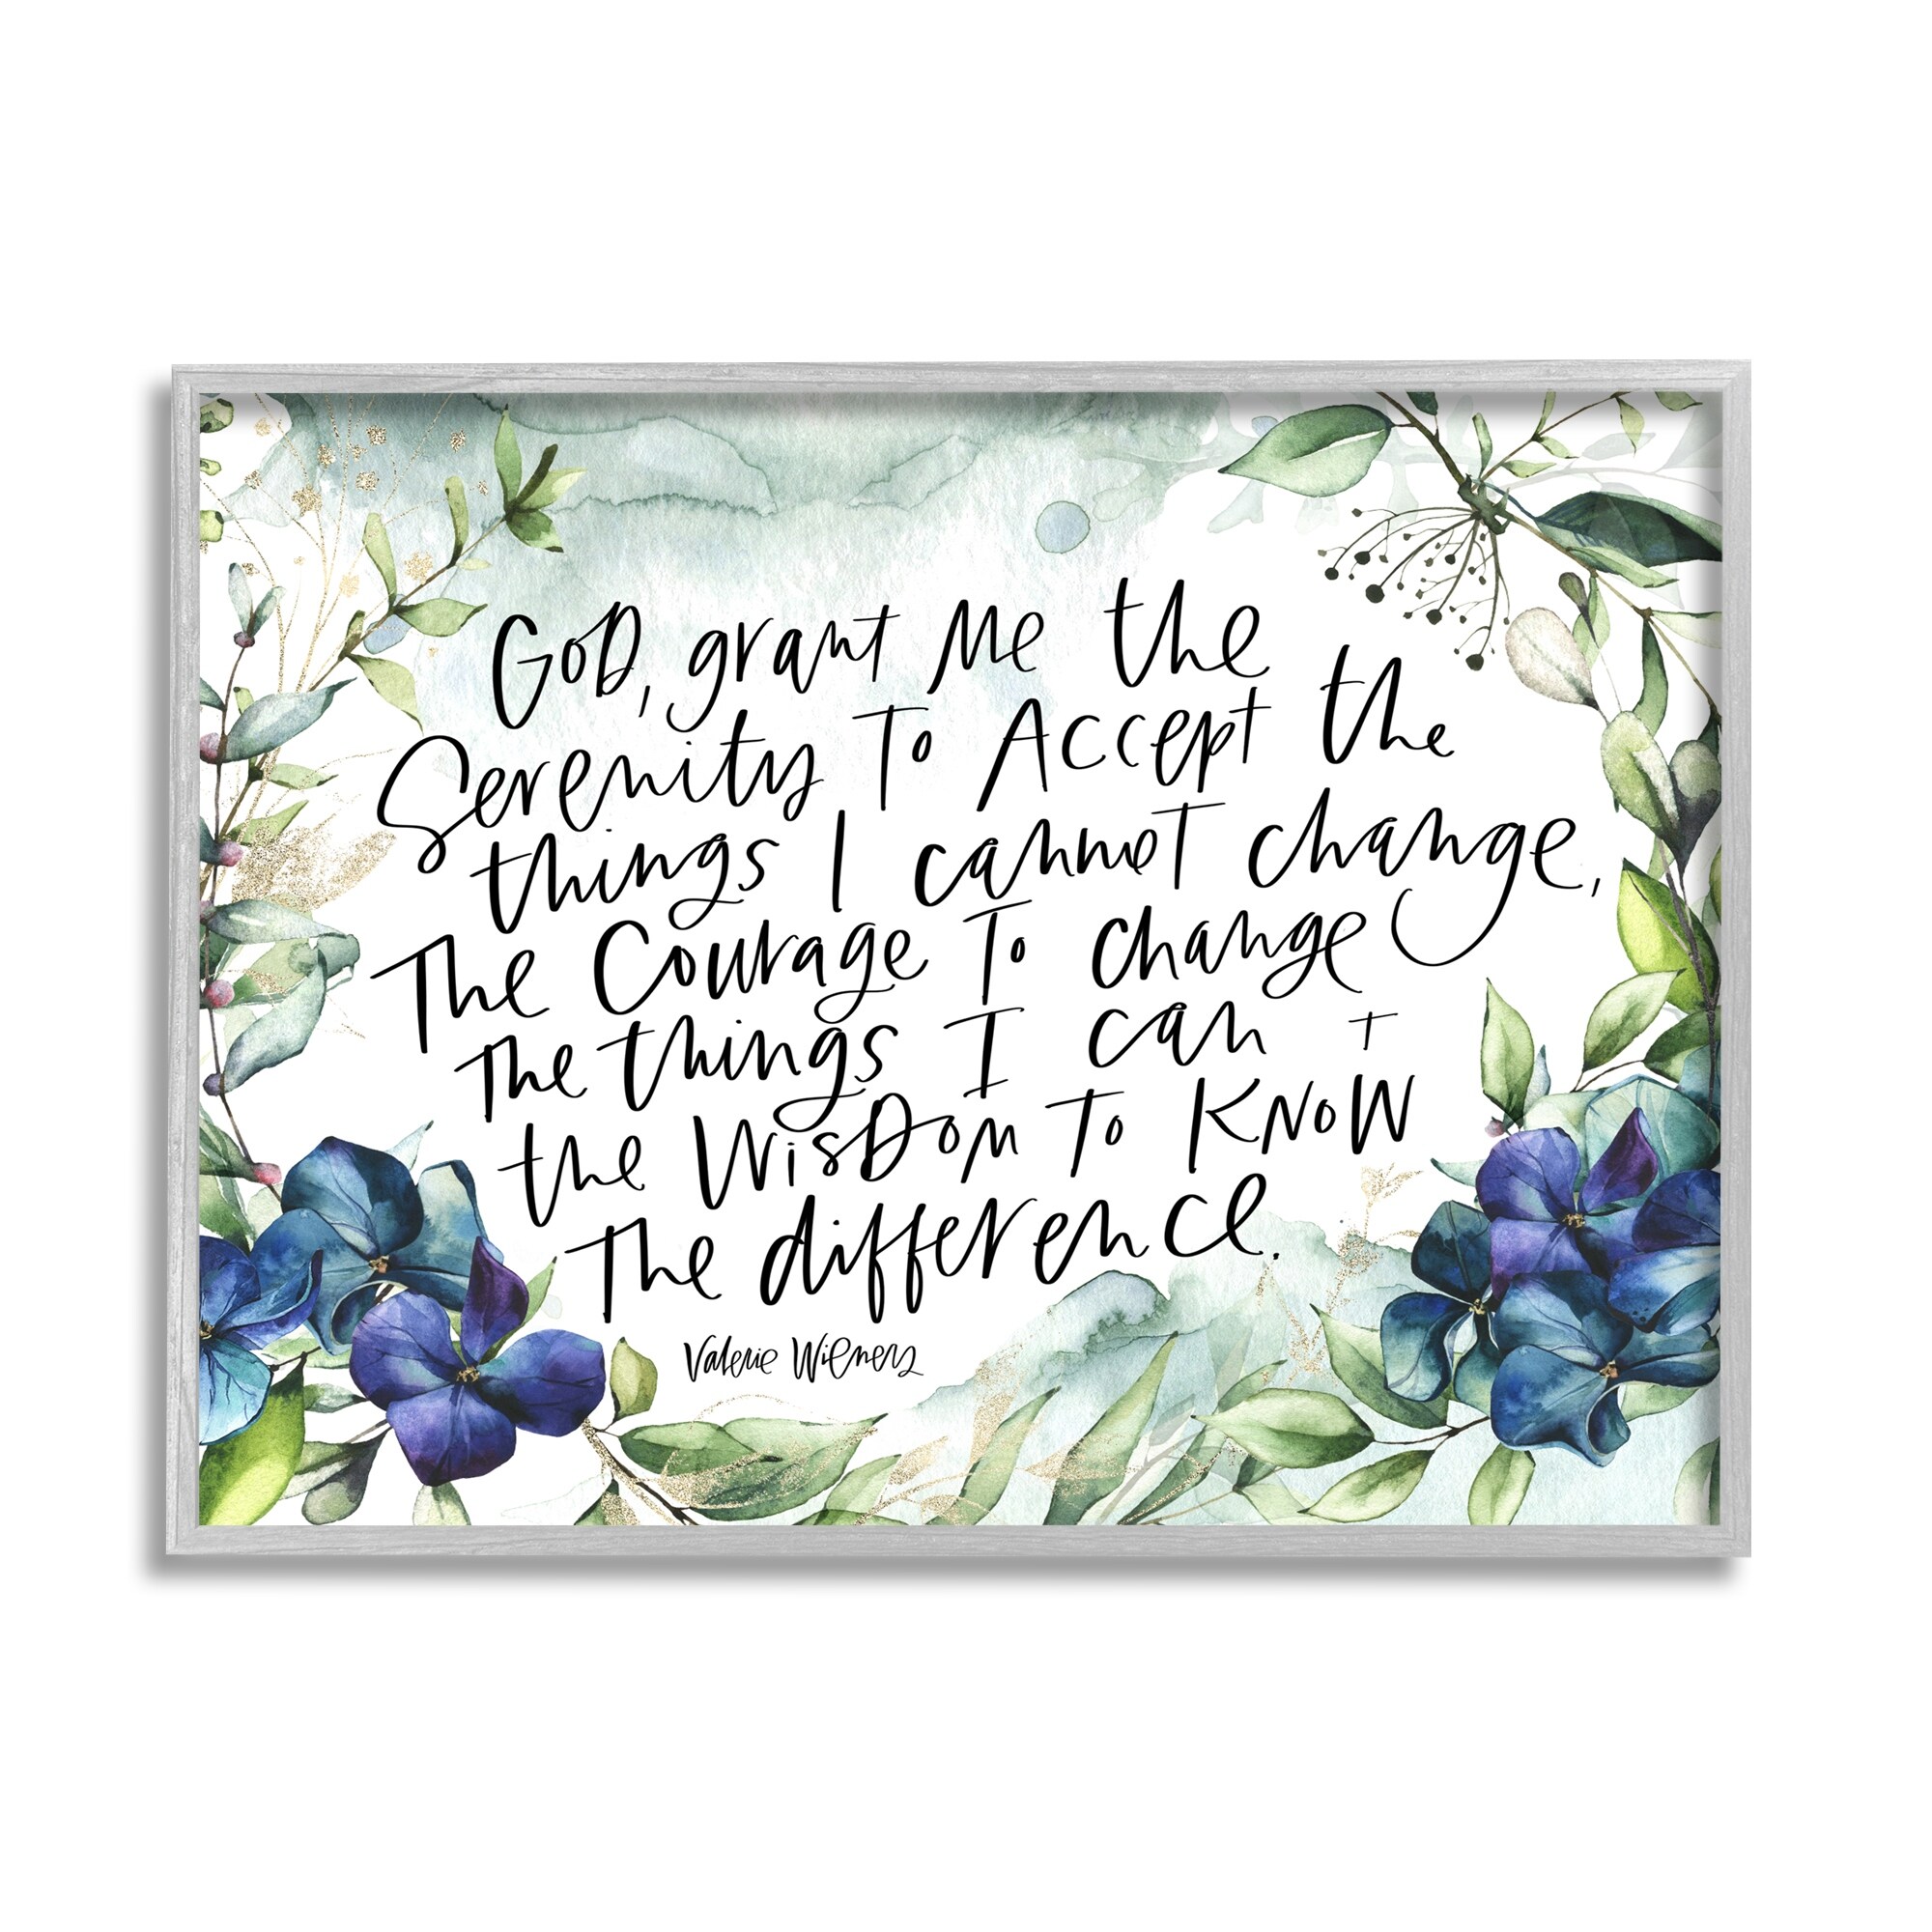 God, grant me the
Serenity to Accept the
things I cannot change,
The Courage to change
The things I can +
the Wisdom to Know
The difference.
Valerie Wieners